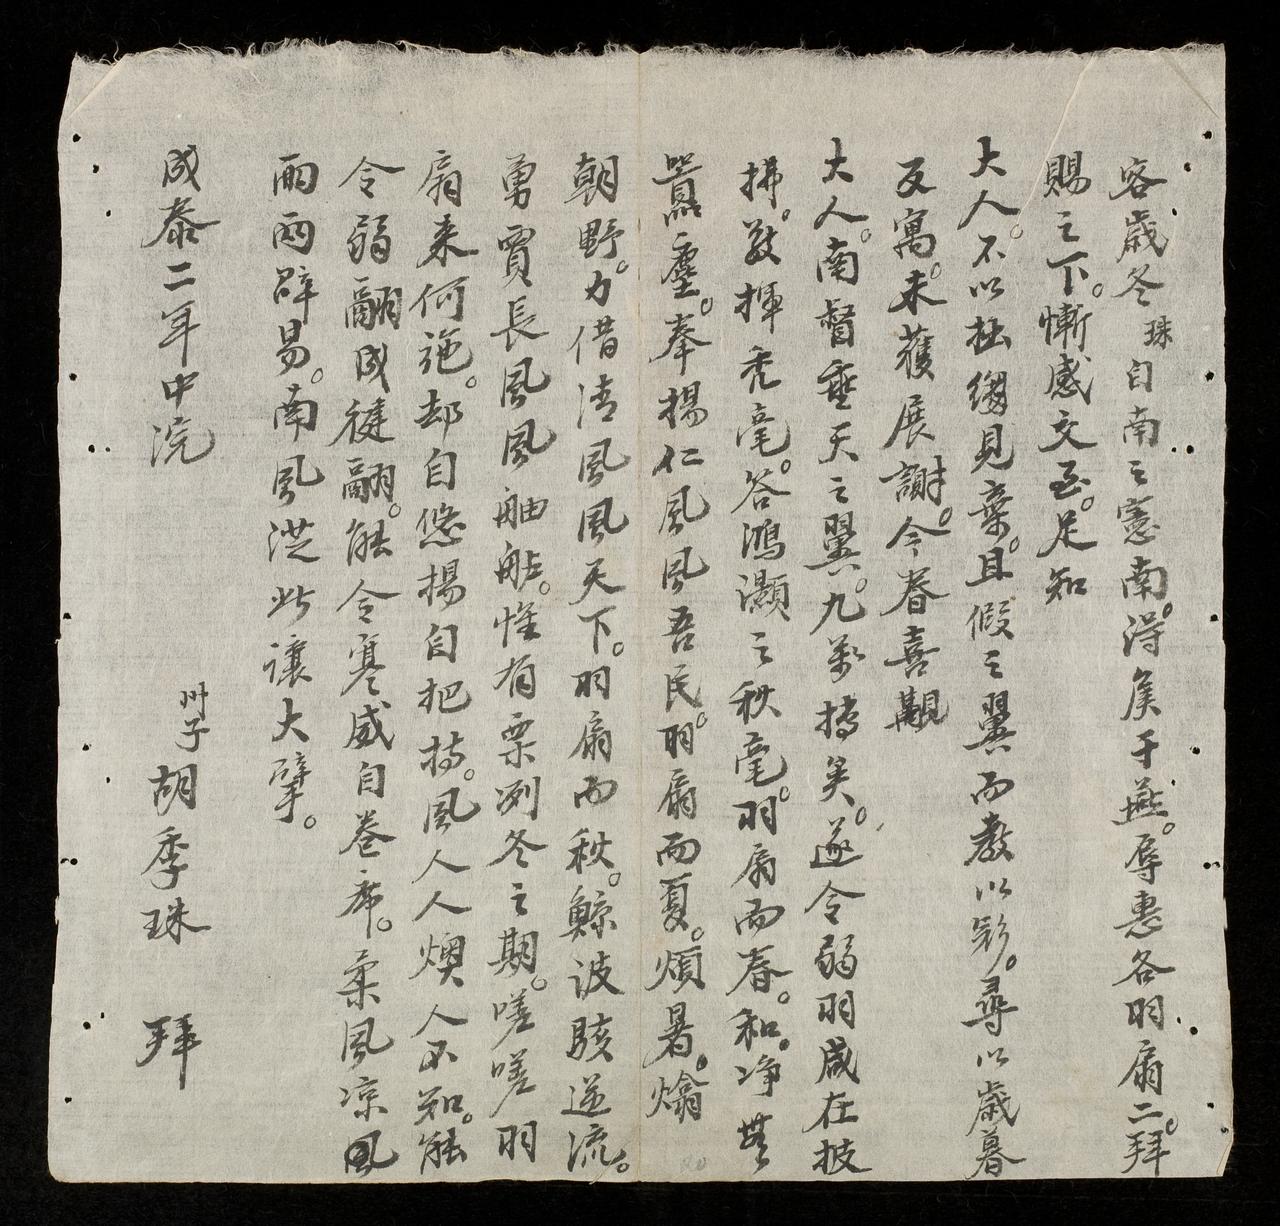 客歲冬珠自南之憲南。得矣于燕。辱惠各羽扇二。拜
賜之下。慚感交至。足知
大人。不以拙㒷見棄。且假之翼而教以彩。尋以歲暮
反寓。未獲展謝。今春喜覩
大人。南督垂天之翼。九萬摶矣。遂令弱羽咸在披
拂。敬揮禿毫。答鴻灝之秋毫。羽扇而春。和。淨無
囂塵。奉揚仁風風吾民。羽扇而夏。煩暑。爚
朝野。力借清風風天下。羽扇而秋。鯨波駭逆流。
勇賈長風風舳船。惟有栗冽冬之期。嗟嗟羽
扇来何施。却自悠揚自把持。風人人燠人不知。能
令弱翮成健翮。能令寒威自卷席。柔風凉風
兩兩辟易。南風從此讓大擘。
成泰二年中浣
州子胡季珠 拜